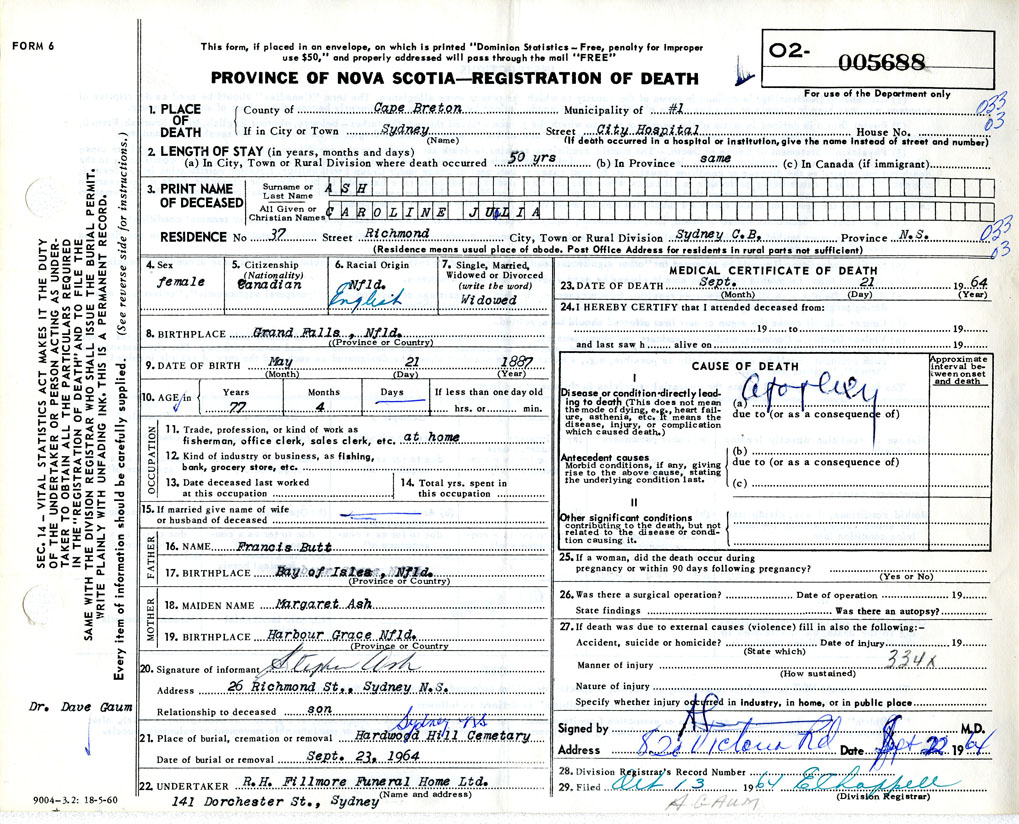 FORM 6
This form, if placed in an envelope, on which is printed "Dominion Statistics – Free, penalty for improper
use $50," and properly addressed will pass through the mail "FREE"
PROVINCE OF NOVA SCOTIA—REGISTRATION OF DEATH
O2- 005688
For use of the Department only
SEC. 14 – VITAL STATISTICS ACT MAKES IT THE DUTY
OF THE UNDERTAKER OR PERSON ACTING AS UNDER-
TAKER TO OBTAIN ALL THE PARTICULARS REQUIRED
IN THE "REGISTRATION OF DEATH" AND TO FILE THE
SAME WITH THE DIVISION REGISTRAR WHO SHALL ISSUE THE BURIAL PERMIT.
WRITE PLAINLY WITH UNFADING INK. THIS IS A PERMANENT RECORD.
Every item of information should be carefully supplied. (See reverse side for instructions.)
1. PLACE OF DEATH
County of Cape Breton Municipality of #1 033
03
If in City or Town Sydney Street City Hospital House No.
(Name) (If death occurred in a hospital or institution, give the name instead of street and number)
2. LENGTH OF STAY (in years, months and days)
(a) In City, Town or Rural Division where death occurred 50 yrs (b) In Province same (c) In Canada (if immigrant)
3. PRINT NAME OF DECEASED
Surname or Last Name ASH
All Given or Christian Names CAROLINE JULIA
RESIDENCE No 37 Street Richmond City, Town or Rural Division Sydney C.B. Province N.S. 033
03
(Residence means usual place of abode. Post Office Address for residents in rural parts not sufficient)
4. Sex
female
5. Citizenship
(Nationality)
Canadian
6. Racial Origin
Nfld.
English
7. Single, Married,
Widowed or Divorced
(write the word)
Widowed
8. BIRTHPLACE Grand Falls, Nfld.
(Province or Country)
9. DATE OF BIRTH May 21 1887
(Month) (Day) (Year)
10. AGE/in Years Months Days If less than one day old
77 4 hrs. or min.
OCCUPATION
11. Trade, profession, or kind of work as
fisherman, office clerk, sales clerk, etc. at home
12. Kind of industry or business, as fishing,
bank, grocery store, etc.
13. Date deceased last worked
at this occupation
14. Total yrs. spent in
this occupation
15. If married give name of wife
or husband of deceased
FATHER
16. NAME Francis Butt
17. BIRTHPLACE Bay of Isles, Nfld.
(Province or Country)
MOTHER
18. MAIDEN NAME Margaret Ash
19. BIRTHPLACE Harbour Grace Nfld.
(Province or Country)
20. Signature of informant Stephen Ash
Address 26 Richmond St., Sydney N.S.
Relationship to deceased son
Dr. Dave Gaum
Sydney NS
21. Place of burial, cremation or removal Hardwood Hill Cemetary
Date of burial or removal Sept. 23, 1964
22. UNDERTAKER R.H. Fillmore Funeral Home Ltd.
(Name and address)
141 Dorchester St., Sydney
9004-3.2: 18-5-60
MEDICAL CERTIFICATE OF DEATH
23. DATE OF DEATH Sept. 21 1964
(Month) (Day) (Year)
24. I HEREBY CERTIFY that I attended deceased from:
19 to 19
and last saw h alive on 19
CAUSE OF DEATH
Approximate
interval be-
tween onset
and death
I
Disease or condition directly lead-
ing to death (This does not mean
the mode of dying, e.g., heart fail-
ure, asthenia, etc. It means the
disease, injury, or complication
which caused death.)
(a) apoplexy
due to (or as a consequence of)
Antecedent causes
Morbid conditions, if any, giving
rise to the above cause, stating
the underlying condition last.
(b)
due to (or as a consequence of)
(c)
II
Other significant conditions
contributing to the death, but not
related to the disease or condi-
tion causing it.
25. If a woman, did the death occur during
pregnancy or within 90 days following pregnancy?
(Yes or No)
26. Was there a surgical operation? Date of operation 19
State findings Was there an autopsy?
27. If death was due to external causes (violence) fill in also the following:–
Accident, suicide or homicide? Date of injury 19
(State which)
334x
Manner of injury
(How sustained)
Nature of injury
Specify whether injury occurred in industry, in home, or in public place
Signed by M.D.
Address Victoria Rd Date Sept 22 1964
28. Division Registrar's Record Number
29. Filed Oct 13 1964 E Chappell
(Division Registrar)
A GAUM